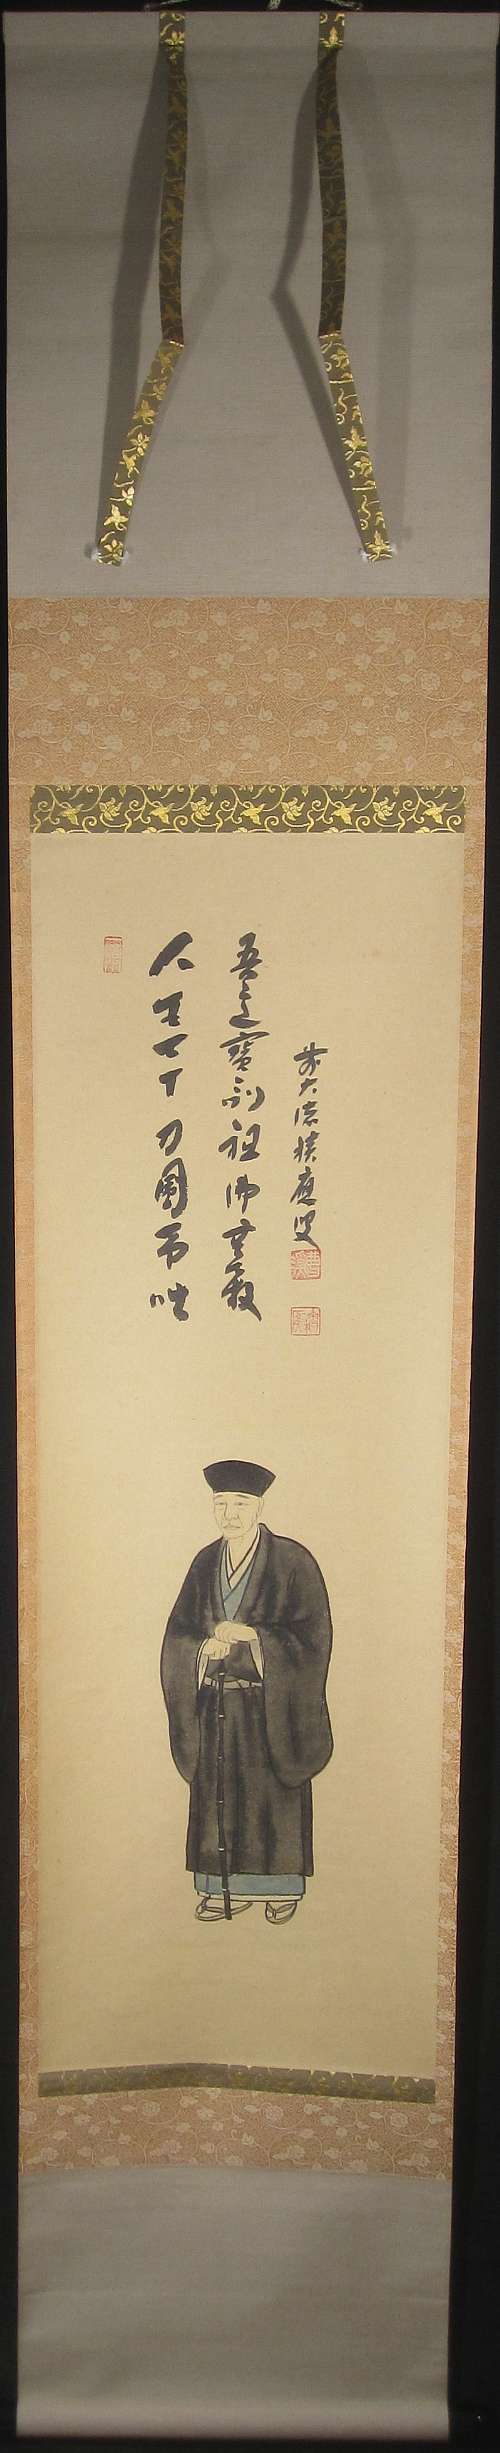 人生七十力圍希咄
吾這寶剣祖佛共殺
前大徳積應叟